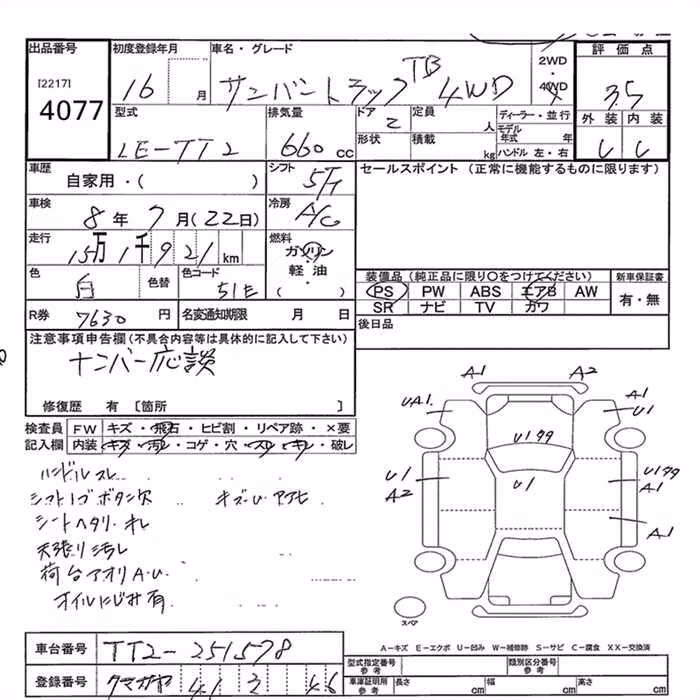 出品番号 初度登録年月 車名・グレード 2WD 評価点
[2217] 16 月 サンバートラック TB 4WD 4WD 3.5
4077 型式 排気量 ドア 2 定員 人 ディーラー・並行 外装 内装
LE-TT2 660 cc 形状 積載 kg モデル年式 年 ハンドル 左・右
車歴 シフト セールスポイント (正常に機能するものに限ります)
自家用・( ) 5
車検 8年7月(22日) 冷房 A/C
走行 15万1千921km 燃料 ガソリン
軽油
( )
色 白 色替 色コード 51E
装備品 (純品に限り○をつけてください) 新車保証書
PS PW ABS エアB AW 有・無
SR ナビ TV カワ
R券 7630円 名変通知期限 月 日 後日品
注意事項申告欄(不具合内容等は具体的に記入して下さい)
ナンバー応談
修復歴 有 〔箇所 〕
検査員 FW キズ・飛石・ヒビ割・リペア跡・×要
記入欄 内装 キズ・汚レ・コゲ・穴・スレ・キレ・破レ
ハンドルスレ
シフトノブボタン欠 キズ・U
シートヘタリ・キレ
天張り汚レ
荷台アオリA・U
オイルにじみ有
A1 A2
UA1. A1
U1
U199
U1 U1 U199
A2 A1
A1
スペア
A-キズ E-エクボ U-凹み W-補修跡 S-サビ C-腐食 XX-交換済
車台番号 TT2-251578
型式指定番号 参考 類別区分番号 参考
登録番号 クマガヤ 41 46
車庫証明用 参考 長さ cm 幅 cm 高さ cm